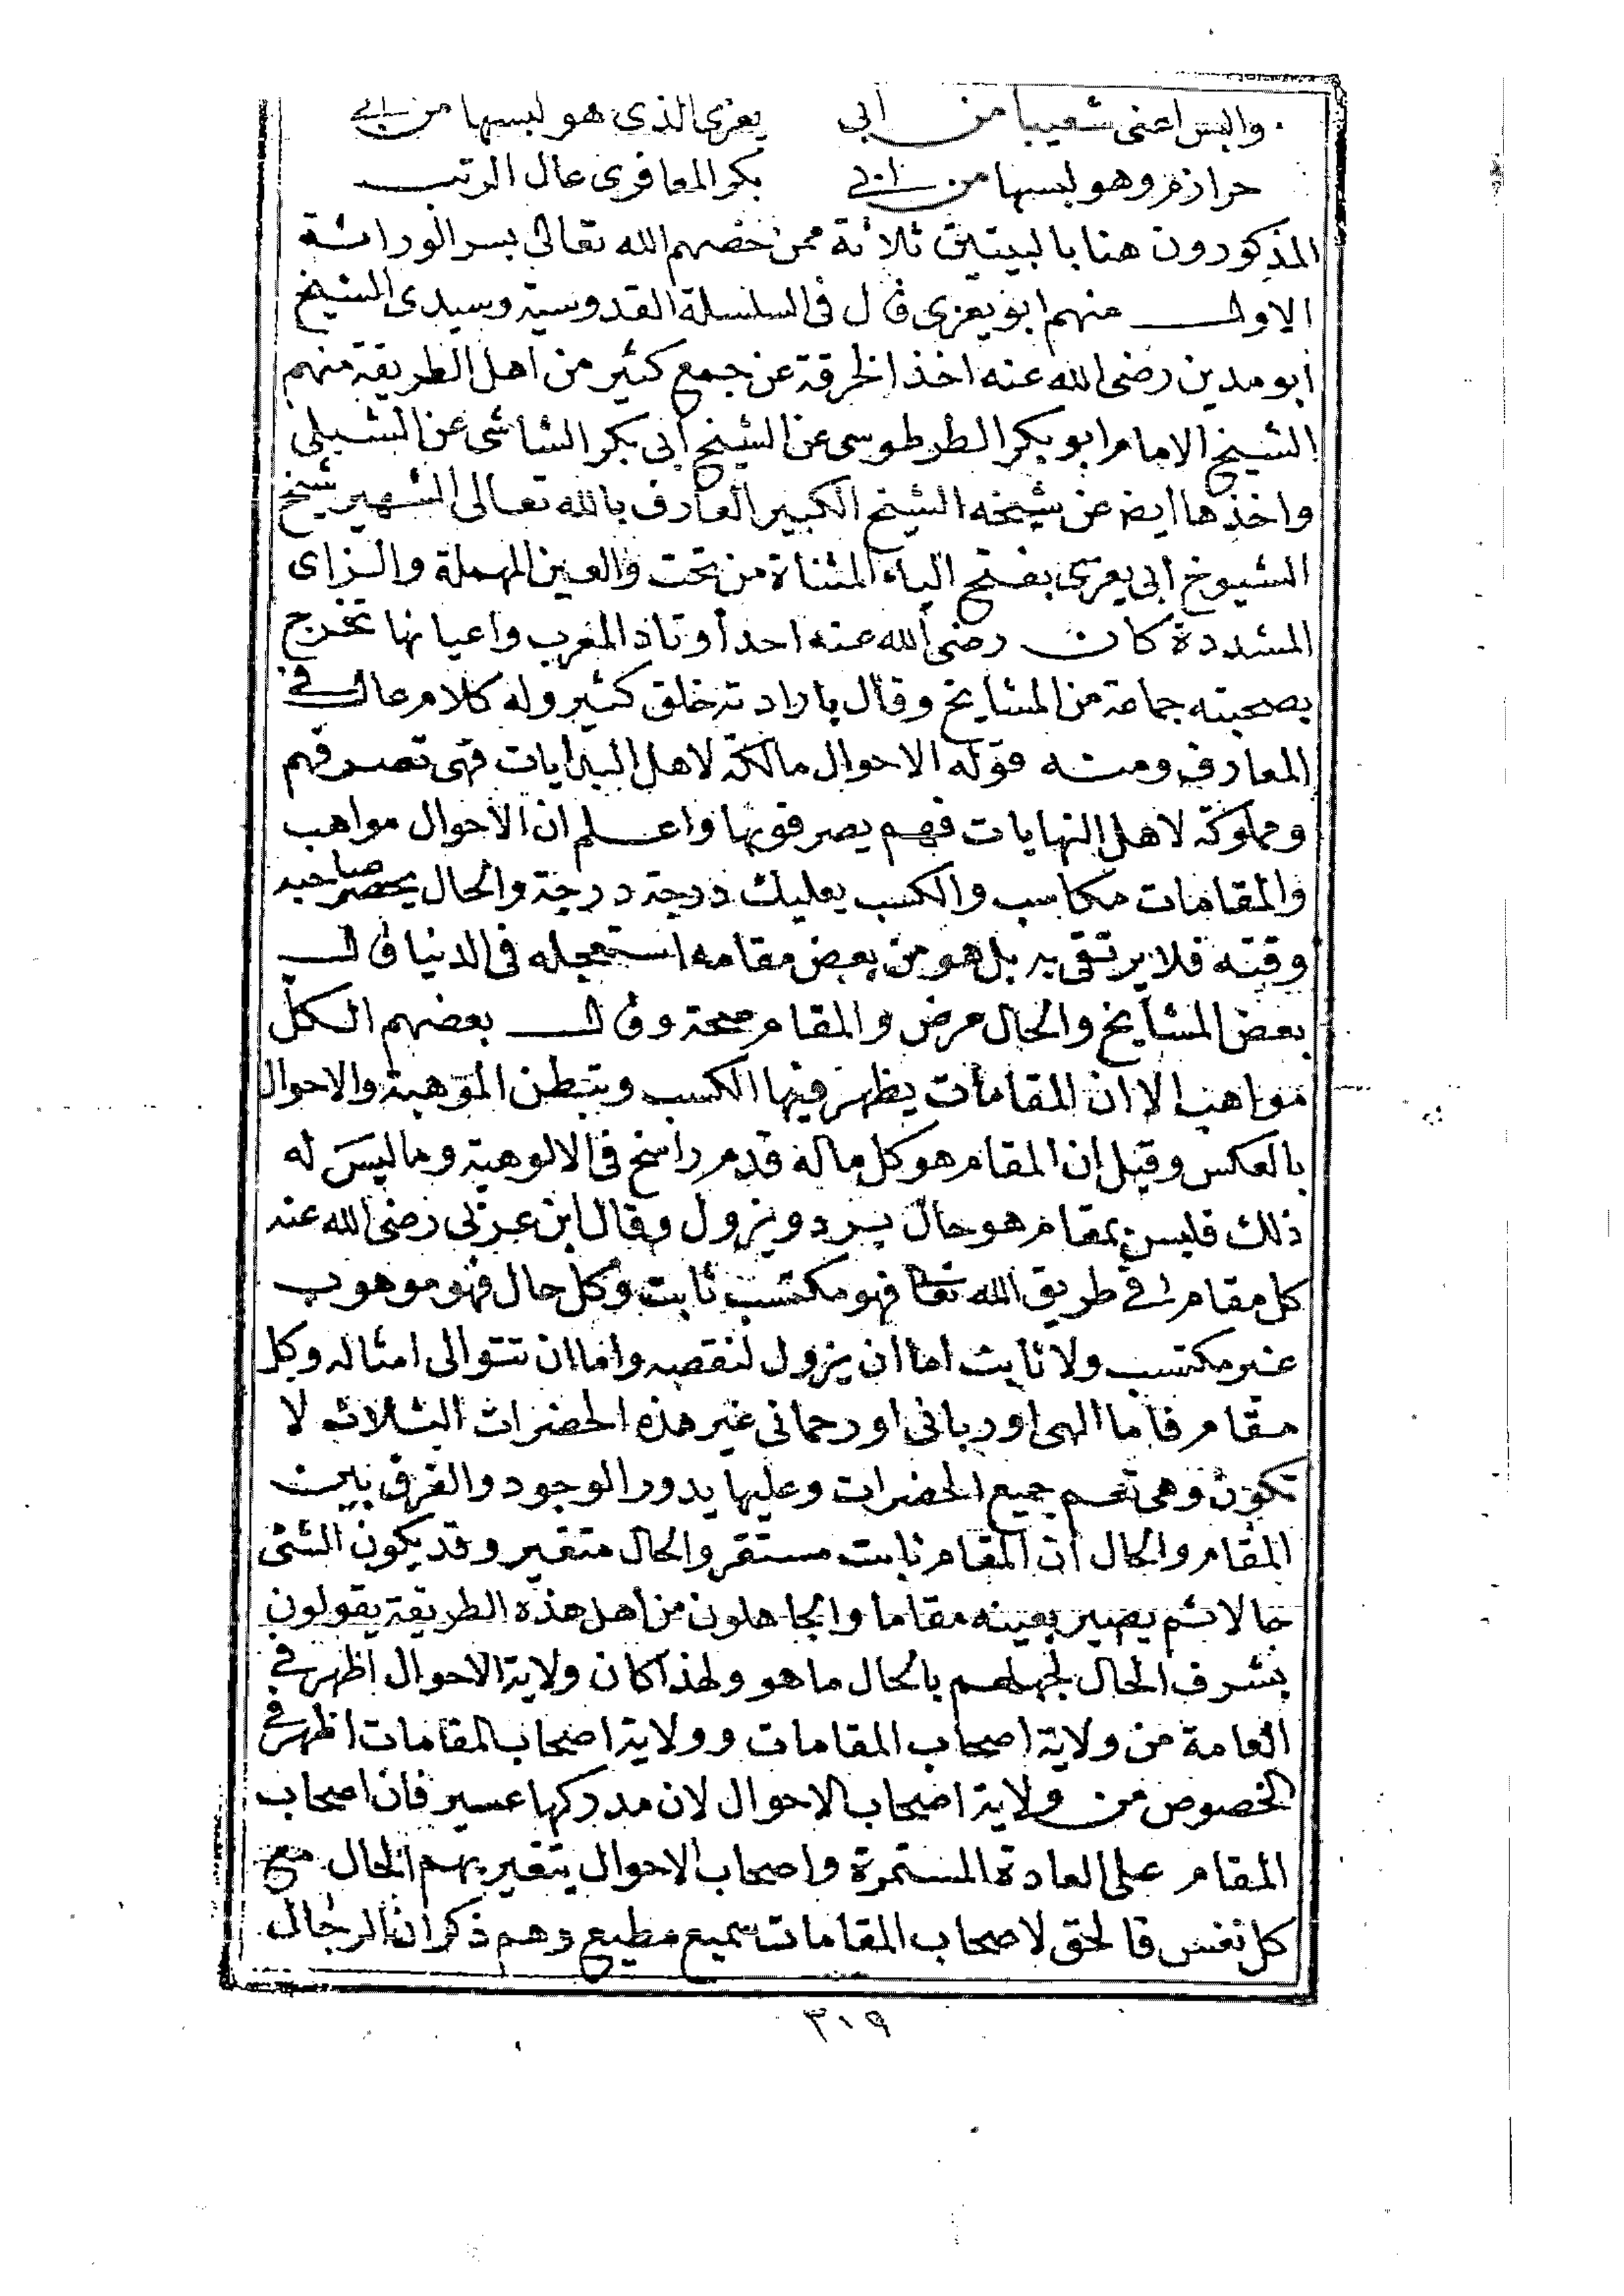 والبس اعنى شعيبا من ابى يعزى الذى هو لبسها من ابى
حرازم وهو لبسها من ابى بكر المعافرى عال الرتب
المذكورون هنا بالبيتين ثلاثة ممن خصهم الله تعالى بسر الوراثة
الاول منهم ابو يعزى قال فى السلسلة القدوسية وسيدى الشيخ
ابو مدين رضى الله عنه اخذ الخرقة عن جمع كثير من اهل الطريقة منهم
الشيخ الامام ابو بكر الطرطوسى عن الشيخ ابى بكر الشاشى عن الشبلى
واخذها ايضا عن شيخه الشيخ الكبير العارف بالله تعالى الشهير شيخ
الشيوخ ابى يعزى بفتح الياء المثناة من تحت والعين المهملة والزاى
المشددة كان رضى الله عنه احد أوتاد المغرب واعيانها تخرج
بصحبته جماعة من المشايخ وقال بارادته خلق كثير وله كلام عال فى
المعارف ومنه قوله الاحوال مالكة لاهل البدايات فهى تصرفهم
ومملوكة لاهل النهايات فهم يصرفونها واعلم ان الاحوال مواهب
والمقامات مكاسب والكسب يعليك درجة درجة والحال يحصر صاحبه
وقته فلا يرتقى به بل هو من بعض مقامه استعجله فى الدنيا قال
بعض المشايخ والحال مرض والمقام صحة وقال بعضهم الكل
مواهب الا ان المقامات يظهر فيها الكسب ويتبطن الموهبة والاحوال
بالعكس وقيل ان المقام هو كل ماله قدم راسخ فى الالوهية وما ليس له
ذلك فليس بمقام هو حال يرد ويزول وقال ابن عربى رضى الله عنه
كل مقام فى طريق الله تعا فهو مكتسب ثابت وكل حال فهو موهوب
غير مكتسب ولا ثابت اما ان يزول لنقصه واما ان تتوالى امثاله وكل
مقام فاما الهى او ربانى او رحمانى غير هذه الحضرات الثلاث لا
تكون وهى تعم جميع الحضرات وعليها يدور الوجود والفرق بين
المقام والحال ان المقام ثابت مستقر والحال متغير وقد يكون الشئ
حالا ثم يصير بعينه مقاما والجاهلون من اهل هذه الطريقة يقولون
بشرف الحال لجهلهم بالحال ما هو ولهذا كان ولاية الاحوال اظهر فى
العامة من ولاية اصحاب المقامات وولاية اصحاب المقامات اظهر فى
الخصوص من ولاية اصحاب الاحوال لان مدركها عسير فان اصحاب
المقام على العادة المستمرة واصحاب الاحوال يتغير بهم الحال مع
كل نفس فالحق لاصحاب المقامات سميع مطيع وهم ذكران الرجال
٣١٩